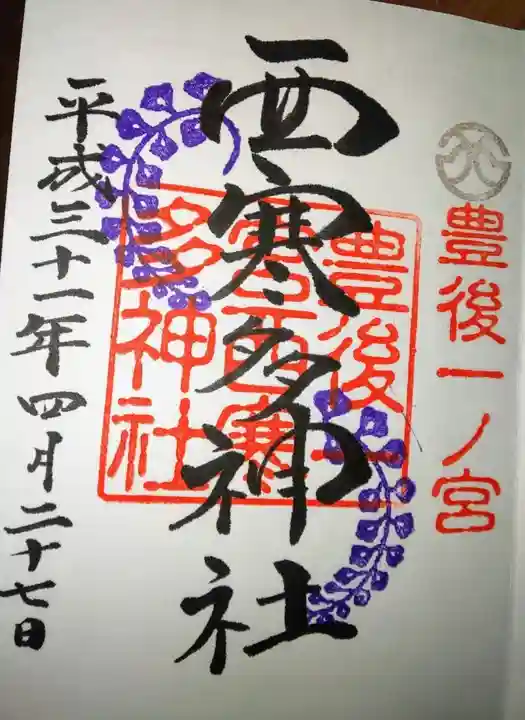 豊後一ノ宮
西寒多神社
豊後一
宮西寒
多神社
平成三十一年四月二十七日